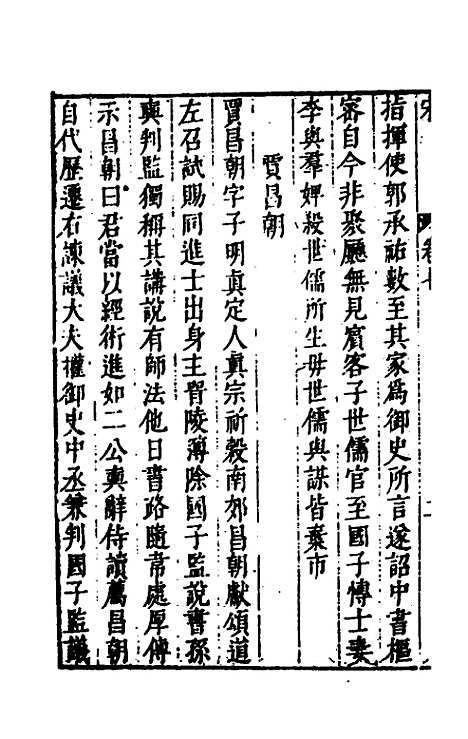 指揮使郭承祐數至其家爲御史所言遂詔中書樞
密自今非聚廳無見賓客子世儒官至國子博士妻
李與羣婢殺世儒所生母世儒與謀皆棄市
賈昌朝
賈昌朝字子明真定人真宗祈穀南郊昌朝獻頌道
左召試賜同進士出身主晉陵薄除國子監說書孫
奭判監獨稱其講說有師法他日書路隨韋處厚傳
示昌朝曰君當以經術進如二公奭辭侍讀薦昌朝
自代歷遷右諫議大夫權御史中丞兼判國子監議